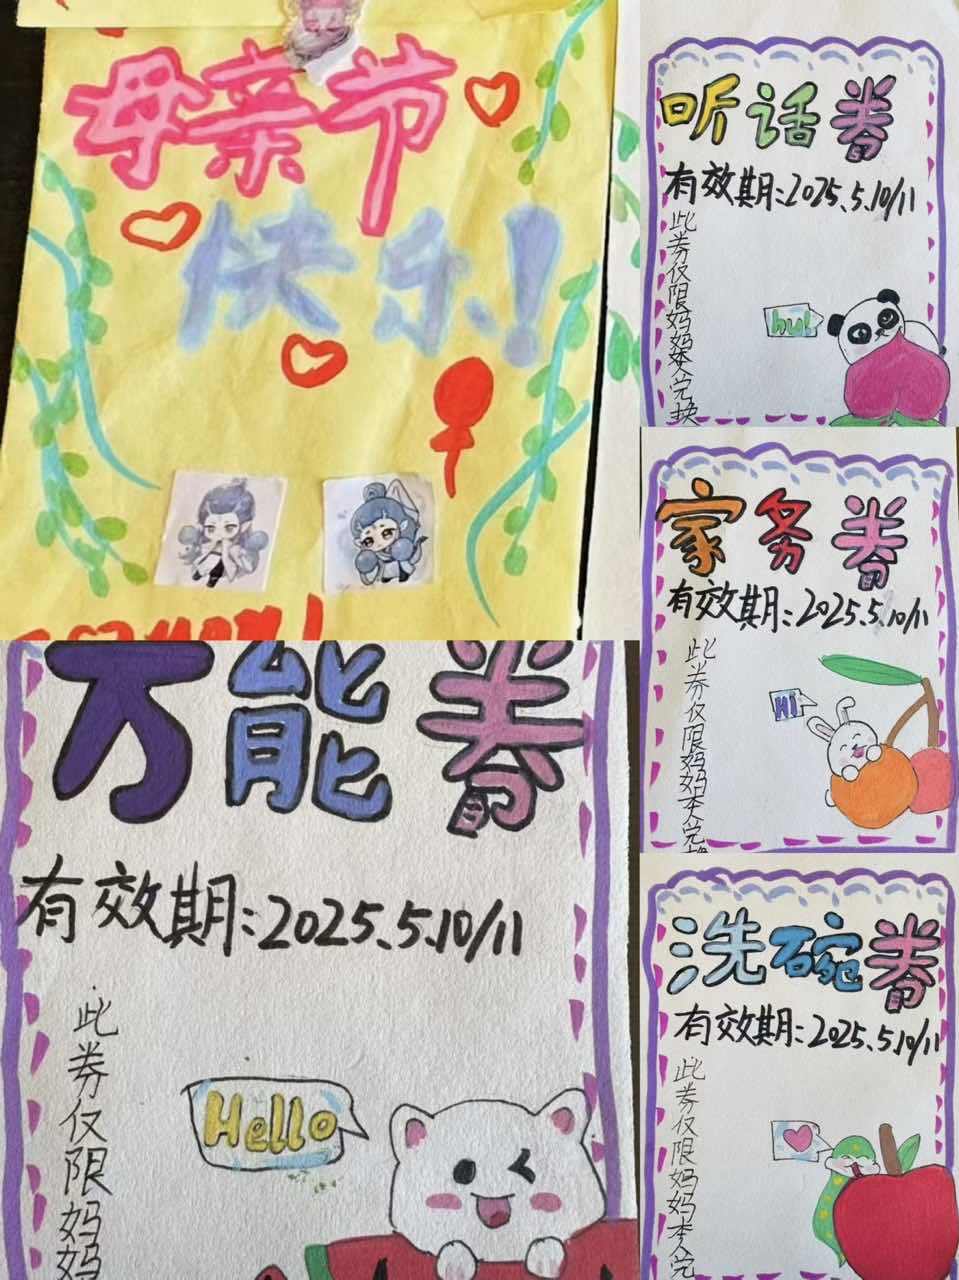 母亲节
快乐!
听话券
有效期:2025.5.10/11
此券仅限妈妈本人兑换
hu!
家务券
有效期:2025.5.10/11
此券仅限妈妈本人兑
Hi
万能券
有效期:2025.5.10/11
此券仅限妈妈
Hello
洗碗券
有效期:2025.5.10/11
此券仅限妈妈本人兑